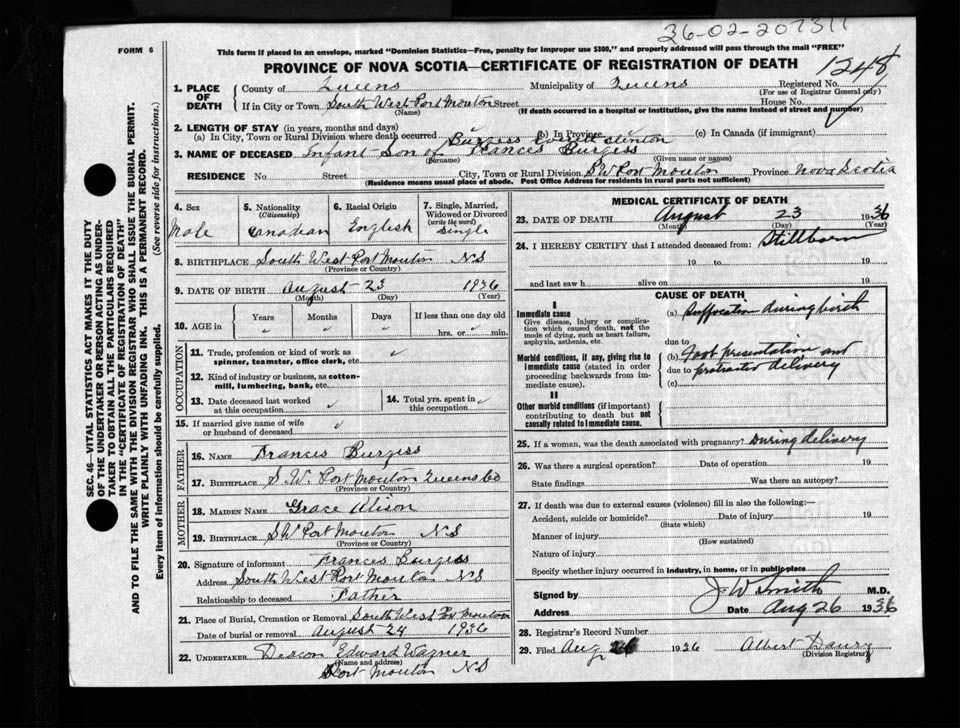 36-02-207311
FORM 6
This form if placed in an envelope, marked "Dominion Statistics—Free, penalty for improper use $300," and properly addressed will pass through the mail "FREE"
PROVINCE OF NOVA SCOTIA—CERTIFICATE OF REGISTRATION OF DEATH
1248
1. PLACE OF DEATH
County of Queens Municipality of Queens Registered No.
(For use of Registrar General only)
If in City or Town South West Port Mouton Street House No.
(Name) (If death occurred in a hospital or institution, give the name instead of street and number)
2. LENGTH OF STAY (in years, months and days)
(a) In City, Town or Rural Division where death occurred (b) In Province (c) In Canada (if immigrant)
Burgess Clinton
3. NAME OF DECEASED Infant Son of Frances Burgess
(Surname) (Given name or names)
RESIDENCE No. Street City, Town or Rural Division SW Port Mouton Province Nova Scotia
(Residence means usual place of abode. Post Office Address for residents in rural parts not sufficient)
4. Sex Male
5. Nationality (Citizenship) Canadian
6. Racial Origin English
7. Single, Married, Widowed or Divorced (write the word) Single
8. BIRTHPLACE South West Port Mouton NS
(Province or Country)
9. DATE OF BIRTH August 23 1936
(Month) (Day) (Year)
10. AGE in Years Months Days If less than one day old
hrs. or min.
OCCUPATION
11. Trade, profession or kind of work as spinner, teamster, office clerk, etc.
12. Kind of industry or business, as cotton-mill, lumbering, bank, etc.
13. Date deceased last worked at this occupation
14. Total yrs. spent in this occupation
15. If married give name of wife or husband of deceased
FATHER
16. NAME Frances Burgess
17. BIRTHPLACE S.W. Port Mouton Queens Co
(Province or Country)
MOTHER
18. MAIDEN NAME Grace Wilson
19. BIRTHPLACE SW Port Mouton NS
(Province or Country)
20. Signature of informant Frances Burgess
Address South West Port Mouton NS
Relationship to deceased Father
21. Place of Burial, Cremation or Removal South West Pt Mouton
Date of burial or removal August 24 1936
22. UNDERTAKER Deacon Edward Wagner
(Name and address)
Port Mouton NS
MEDICAL CERTIFICATE OF DEATH
23. DATE OF DEATH August 23 1936
(Month) (Day) (Year)
24. I HEREBY CERTIFY that I attended deceased from: Stillborn
19 to 19
and last saw h alive on 19
CAUSE OF DEATH
I
Immediate cause
Give disease, injury or complication which caused death, not the mode of dying, such as heart failure, asphyxia, asthenia, etc.
(a) Suffocation during birth
due to
Morbid conditions, if any, giving rise to immediate cause (stated in order proceeding backwards from immediate cause).
(b) Foot presentation and
due to protracted delivery
(c)
II
Other morbid conditions (if important) contributing to death but not causally related to immediate cause.
25. If a woman, was the death associated with pregnancy? During delivery
26. Was there a surgical operation? Date of operation 19
State findings Was there an autopsy?
27. If death was due to external causes (violence) fill in also the following:—
Accident, suicide or homicide? Date of injury 19
(State which)
Manner of injury
(How sustained)
Nature of injury
Specify whether injury occurred in industry, in home, or in public place
Signed by J W Smith M.D.
Address Date Aug 26 1936
28. Registrar's Record Number
29. Filed Aug 1936 Albert
(Division Registrar)
SEC. 46—VITAL STATISTICS ACT MAKES IT THE DUTY
OF THE UNDERTAKER OR PERSON ACTING AS UNDER-
TAKER TO OBTAIN ALL THE PARTICULARS REQUIRED
IN THE "CERTIFICATE OF REGISTRATION OF DEATH"
AND TO FILE THE SAME WITH THE DIVISION REGISTRAR WHO SHALL ISSUE THE BURIAL PERMIT.
WRITE PLAINLY WITH UNFADING INK. THIS IS A PERMANENT RECORD.
Every item of information should be carefully supplied. (See reverse side for instructions.)